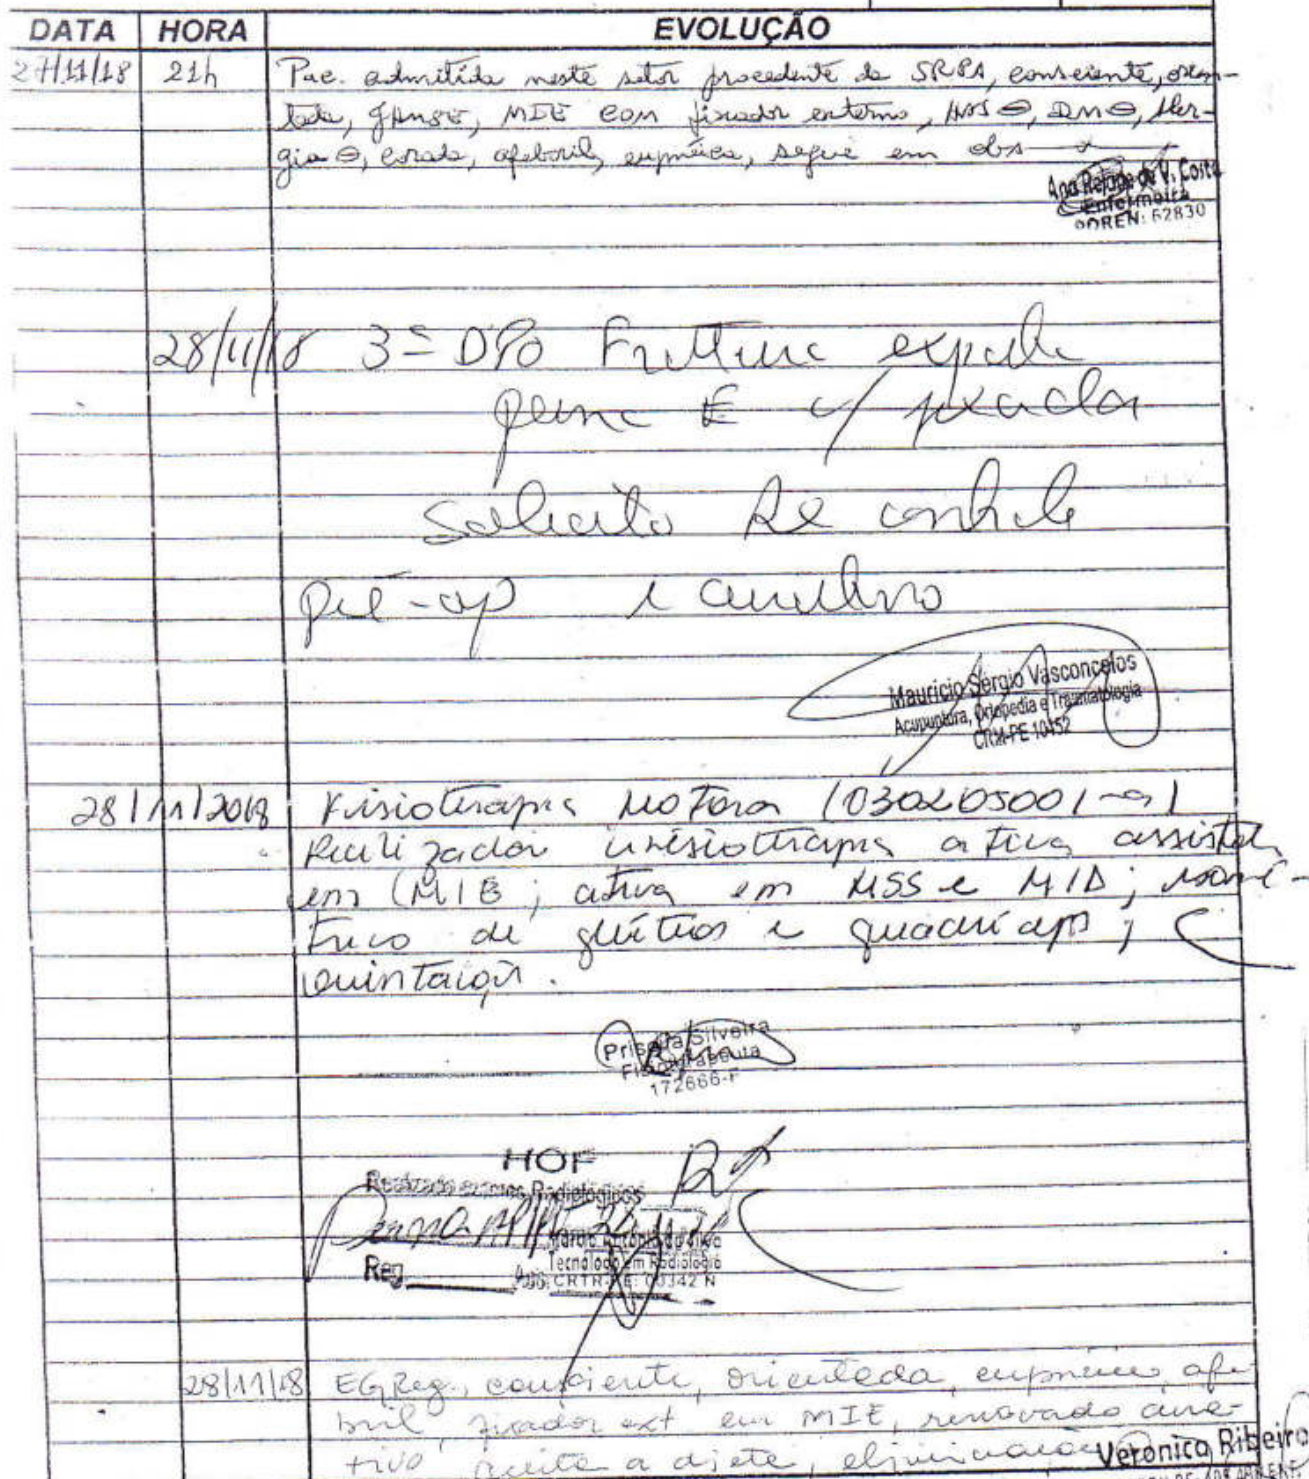 DATA HORA EVOLUÇÃO
27/11/18 21h Pac. admitida neste setor procedente da SRPA, consciente, orien-
tada, MIE com fixador externo, HAS ⊖, DM ⊖, Aler-
gia ⊖, corada, afebril, eupneica, segue em obs
Ana Rejane de V. Costa
Enfermeira
COREN: 62830
28/11/18 3º DPO Fratura exposta
perna E c/ fixador
Solicito Rx controle
pré-op e curativo
Mauricio Sergio Vasconcelos
Acupuntura, Ortopedia e Traumatologia
CRM-PE 10452
28/11/2018 Fisioterapia Motora (030205001-9)
Realizada cinesioterapia ativa assistida
em MIE; ativa em MSS e MID; isomé-
trico de glúteos e quadríceps;
Silveira
Fisioterapeuta
172666-F
HOF Rx
Realizado exames Radiológicos
Perna
Tecnólogo em Radiologia
Reg. CRTR-PE: 00342 N
28/11/18 EGReg., consciente, orientada, eupneica, afe-
bril, fixador ext em MIE, renovado cura-
tivo aceita a dieta,
Veronica Ribeiro